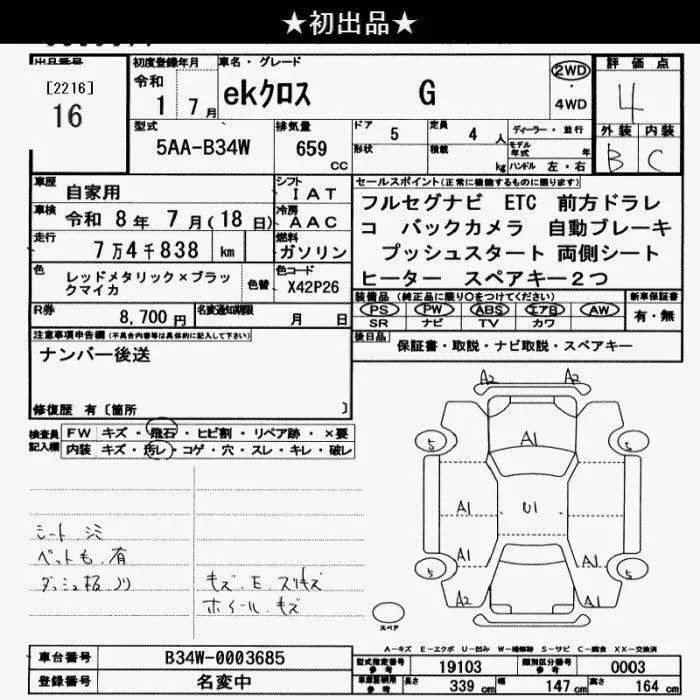 ★初出品★
出品番号
[2216]
16
初度登録年月
令和
1 7月
車名・グレード
ekクロス G
2WD
・
4WD
評価点
4
外装 内装
B C
型式
5AA-B34W
排気量
659 CC
ドア 5
定員 4 人
ディーラー・並行
形状
積載 kg
モデル年式 年
ハンドル 左・右
車歴 自家用
シフト IAT
車検 令和 8年 7月(18日)
冷房 AAC
走行 7万4千838 km
燃料 ガソリン
色 レッドメタリック×ブラックマイカ
色替
色コード X42P26
R券 8,700円
名変通知期限 月 日
セールスポイント(正常に機能するものに限ります)
フルセグナビ ETC 前方ドラレ
コ バックカメラ 自動ブレーキ
プッシュスタート 両側シート
ヒーター スペアキー2つ
装備品 (純正品に限り○をつけてください)
PS PW ABS エアB AW
SR ナビ TV カワ
新車保証書
有・無
後日品 保証書・取説・ナビ取説・スペアキー
注意事項申告欄(不具合内容等は具体的に記入して下さい)
ナンバー後送
修復歴 有〔箇所 〕
検査員記入欄
FW キズ・飛石・ヒビ割・リペア跡・×要
内装 キズ・汚レ・コゲ・穴・スレ・キレ・破レ
シート シミ
ペット毛 有
ダッシュ板 ノリ
キズ E スリキズ
ホイール キズ
A2 A2
A1
5 5
A1 U1
A1 A1
5 5
A2 A1
スペア
A-キズ E-エクボ U-凹み W-補修跡 S-サビ C-腐食 XX-交換済
車台番号 B34W-0003685
登録番号 名変中
型式指定番号参考 19103
類別区分番号参考 0003
車庫証明用参考 長さ 339cm 幅 147cm 高さ 164cm